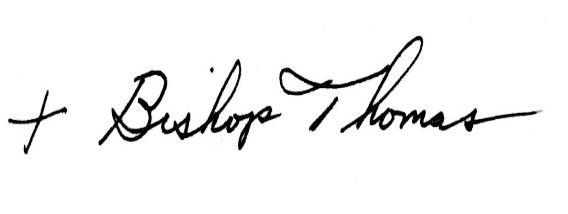 + Bishop Thomas